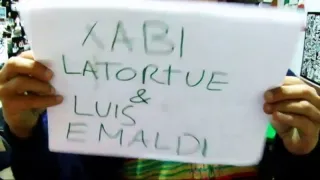 XABI
LATORTUE
&
LUIS
EMALDI